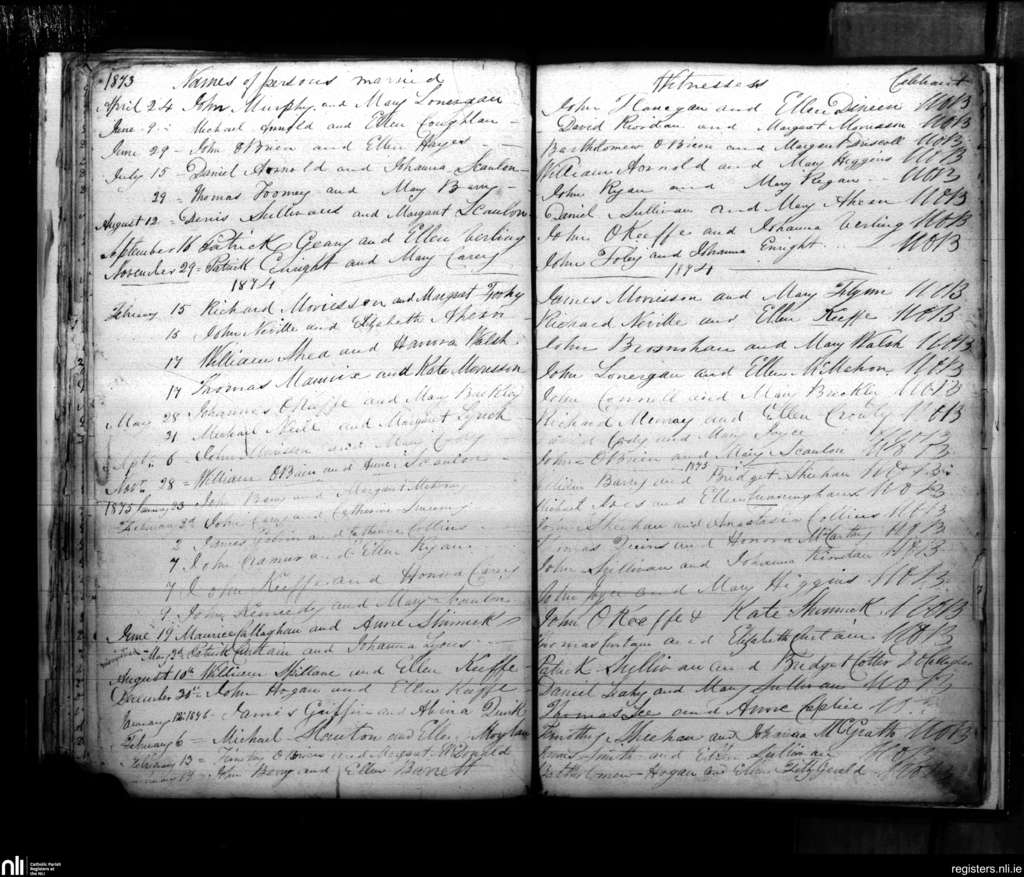 1873 Names of persons married
April 24 John Murphy and Mary Lonergan
June 9 Michael Arnold and Ellen Coughlan
June 29 John O'Brien and Ellen Hayes
July 15 Daniel Arnold and Johanna Scanlon
29 Thomas Toomey and Mary Barry
August 12 Denis Sullivan and Margaret Scanlon
September 18 Patrick Geany and Ellen Verling
November 29 Patrick Enright and Mary Carey
1874
February 15 Richard Morrisson and Margaret
15 John Neville and Elizabeth Ahern
17 William Shea and Hanora Walsh
17 Thomas and Kate Morrisson
May 28 Johannes O'Keeffe and Mary Buckley
31 Michael Neill and Margaret Lynch
Sept. 6 John and Mary Cody
Nov. 28 William O'Brien and Scanlon
1875 January 23 John and Margaret
February 2d John and Catherine
2 James and Catherine Collins
7 John and Ellen Ryan
7 John Keeffe and Honora Carey
9 John Kennedy and Mary Scanlon
June 19 Maurice Callaghan and Anne Shinnick
May 3d Patrick Curtain and Johanna Lyons
August 10th William Spillane and Ellen Keeffe
December 20th John Hogan and Ellen Keeffe
January 12th 1876 James Griffin and Abina
February 6 Michael and Ellen Moylan
February 13 and Margaret
19 John Barry and Ellen Barrett
Witnesses Celebrant
John Flanegan and Ellen Dineen WOB
David Riordan and Margaret Morrisson WOB
Bartholomew O'Brien and Margaret Driscoll WOB
William Arnold and Mary Higgins WOB
John Ryan and Mary Regan WOB
Daniel Sullivan and Mary Ahern WOB
John O'Keeffe and Johanna Verling WOB
John Foley and Johanna Enright WOB
1874
James Morrisson and Mary Flynn WOB
Richard Neville and Ellen Keeffe WOB
John Brosnahan and Mary Walsh WOB
John Lonergan and Ellen McMahon WOB
John Connell and Mary Buckley WOB
Richard Murray and Ellen Crowly WOB
Cody and Mary Joyce WOB
John O'Brien and Mary Scanlon WOB
1875
William Barry and Bridget Sheehan WOB
Michael and Ellen Cunningham WOB
John Sheehan and Anastasia Collins WOB
Thomas and Honora McCarthy WOB
John Sullivan and Johanna Riordan WOB
John Joyce and Mary Higgins WOB
John O'Keeffe & Kate Shinnick WOB
Thomas Curtain and Elizabeth Curtain WOB
Patrick Sullivan and Bridget Cotter
Daniel Daly and Mary Sullivan WOB
Thomas Lee and Anne
Timothy Sheehan and Johanna McGrath WOB
Smith and Ellen Sullivan WOB
Bartholomew Hogan and Ellen FitzGerald WOB
nli Catholic Parish Registers at the NLI
registers.nli.ie